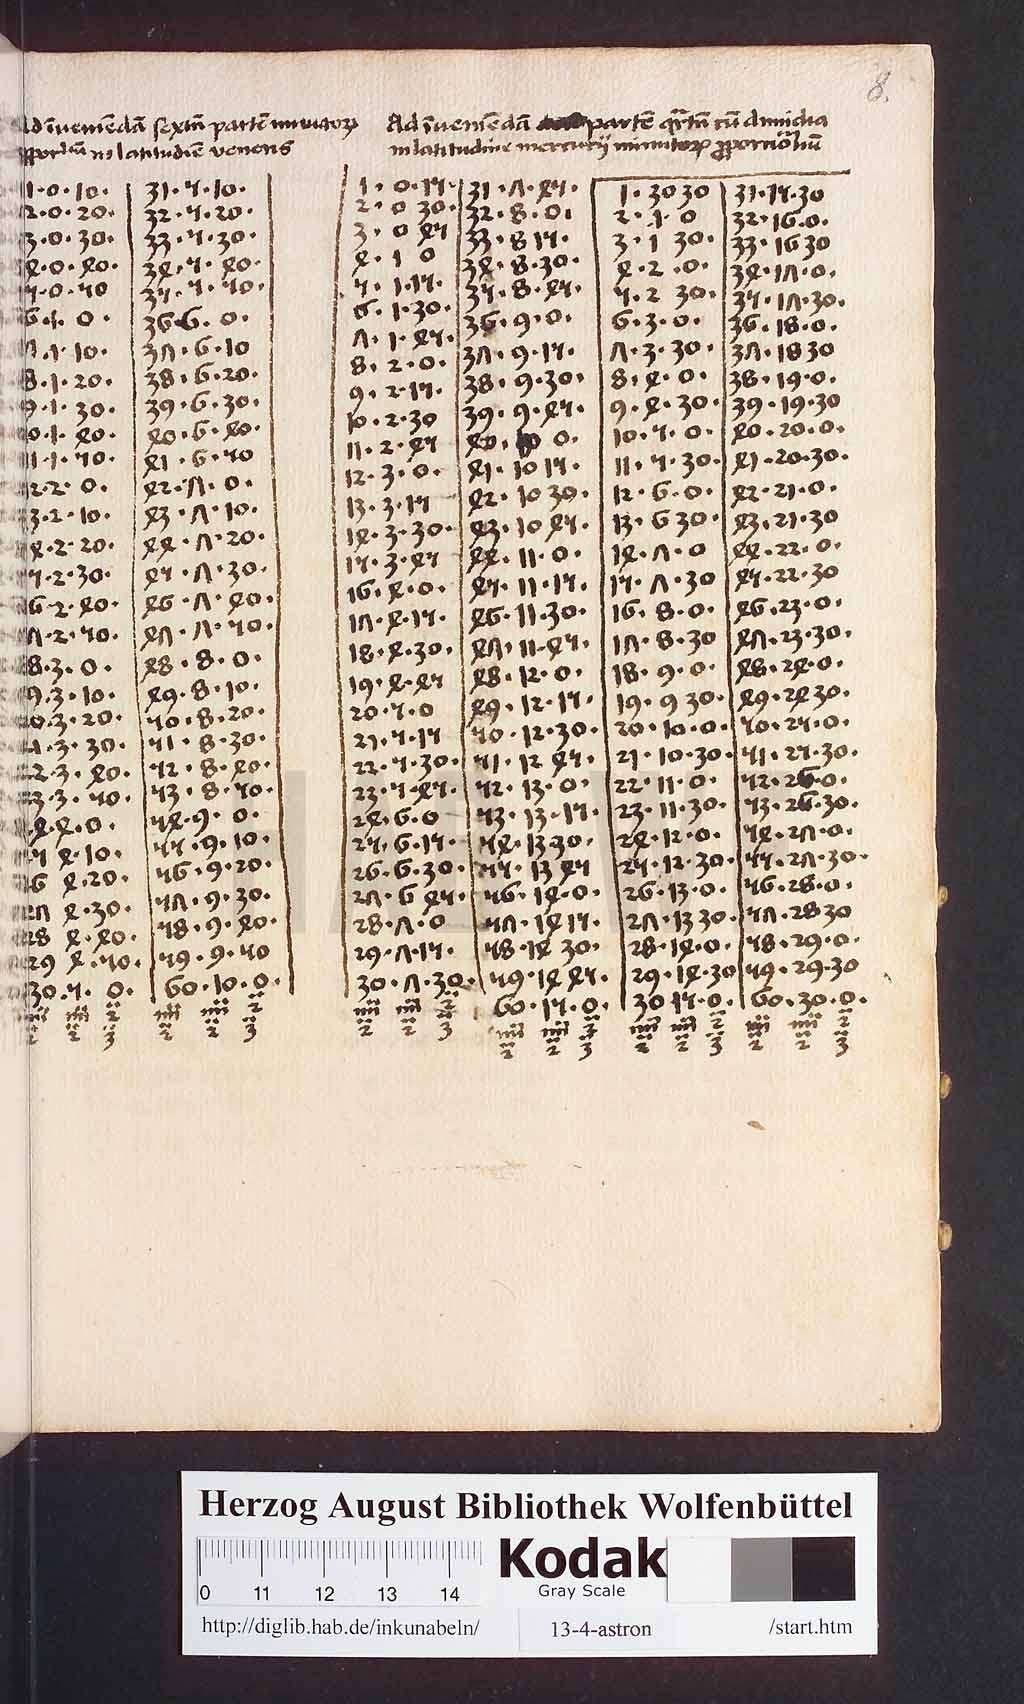 8.
Ad īveniēdā sextā partē minutorꝝ
ꝓporcionaliū in latitudīe veneris
Ad īveniēdā partē qrtā cū dimidia
in latitudine mercurij minutorꝝ ꝓporcionaliū
1.0.10. 31.5.10. 1.0.15. 31.7.45. 1.30 30 31.15.30
2.0.20. 32.5.20. 2.0 30. 32.8.0. 2.1.0 32.16.0.
3.0.30. 33.5.30. 3.0 45 33.8 15. 3.1 30. 33.16 30
4.0.40. 34.5.40. 4.1 0 34.8.30. 4.2.0. 34.17.0.
5.0.50 35.5.50. 5.1.15. 35.8.45. 5.2 30. 35.17.30.
6.1.0. 36 6.0. 6.1.30. 36.9.0. 6.3.0. 36.18.0.
7.1.10. 37.6.10 7.1.45. 37.9.15. 7.3.30. 37.18 30
8.1.20. 38.6.20. 8.2.0. 38.9.30. 8.4.0. 38.19.0.
9.1.30. 39.6.30. 9.2.15. 39.9.45. 9.4.30. 39.19.30
0.1.40. 40.6.40. 10.2.30 40.10 0. 10.5.0. 40.20.0.
1.1.50. 41.6.50 11.2.45 41.10 15. 11.5.30. 41.20.30.
2.2.0. 42.7.0. 12.3.0. 42.10 30. 12.6.0. 42.21.0.
3.2.10. 43.7.10. 13.3.15 43.10 45. 13.6 30. 43.21.30
4.2.20. 44.7.20. 14.3.30. 44.11.0. 14.7.0 44.22.0.
5.2.30. 45.7.30. 15.3.45 45.11.15. 15.7.30 45.22.30
6.2.40. 46.7.40. 16.4.0. 46.11.30. 16.8.0. 46.23.0.
7.2.50. 47.7.50. 17.4.15. 47.11.45. 17.8.30 47.23.30.
8.3.0. 48.8.0. 18.4.30. 48.12.0. 18.9.0. 48.24.0.
9.3.10. 49.8.10. 19.4.45 49.12.15. 19.9 30. 49.24 30.
20.3.20. 50.8.20. 20.5.0 50.12.30. 20.10.0. 50.25.0.
21.3.30. 51.8.30. 21.5.15 51.12 45. 21.10.30. 51.25.30.
22.3.40. 52.8.40. 22.5.30. 52.13.0. 22.11.0. 52.26.0.
23.3.50. 53.8.50. 23.5.45. 53.13.15. 23.11.30. 53.26.30.
4.4.0. 54.9.0. 24.6.0 54.13 30. 24.12.0. 54.27.0.
5 4.10. 55.9.10. 25.6.15. 55.13 45 25.12.30. 55.27.30.
26 4.20. 56.9.20. 26.6.30. 56.14.0. 26.13.0. 56.28.0.
27 4.30. 57.9.30. 27.6 45. 57.14 15. 27.13 30. 57.28 30
28 4.40. 58.9.40. 28.7.0 58.14 30. 28.14.0. 58.29.0.
29 4.50. 59.9.50 29.7.15. 59.14 45. 29.14.30 59.29.30
30.5.0. 60.10.0. 30.7.30. 60.15.0. 30 15.0. 60.30.0.
Herzog August Bibliothek Wolfenbüttel
0 11 12 13 14
Kodak
Gray Scale
http://diglib.hab.de/inkunabeln/ 13-4-astron /start.htm